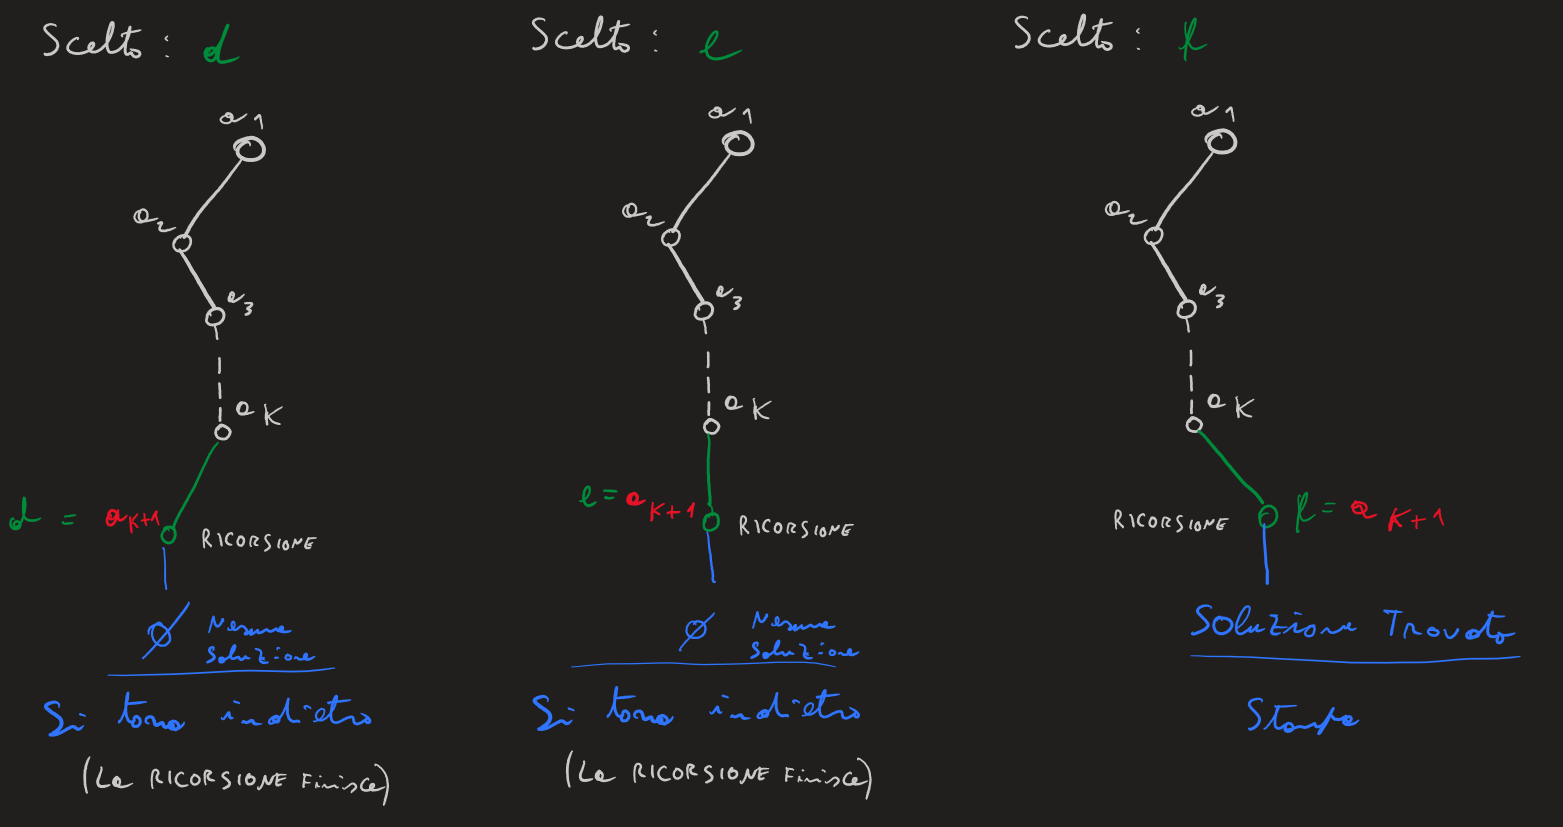 Scelto : d
a1
a2
a3
aK
d = aK+1
RICORSIONE
∅ Nessuna
Soluzione
Si torna indietro
(La RICORSIONE Finisce)
Scelto : e
a1
a2
a3
aK
e = aK+1
RICORSIONE
∅ Nessuna
Soluzione
Si torna indietro
(La RICORSIONE Finisce)
Scelto : f
a1
a2
a3
aK
RICORSIONE
f = aK+1
Soluzione Trovata
Stampa